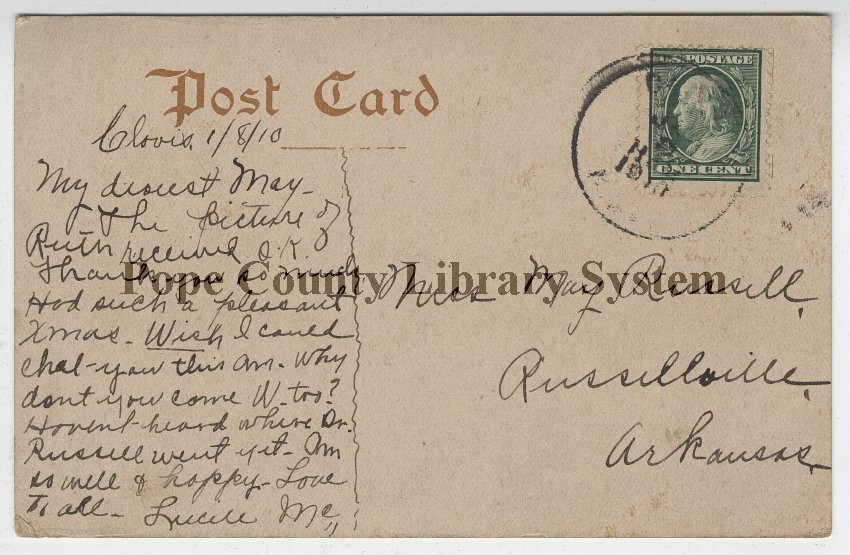 Post Card
U.S. POSTAGE
ONE CENT
1910
Clovis, 1/8/10
My dearest May -
The picture of
Ruth received O.K.
Thank you so much
Had such a pleasant
Xmas. Wish I could
chat - you this am. Why
don't you come W. too?
Haven't heard where Dr.
Russell went yet - Am
so well & happy - Love
To all - Lucile Mc
Miss May Russell,
Russellville,
Arkansas
Pope County Library System